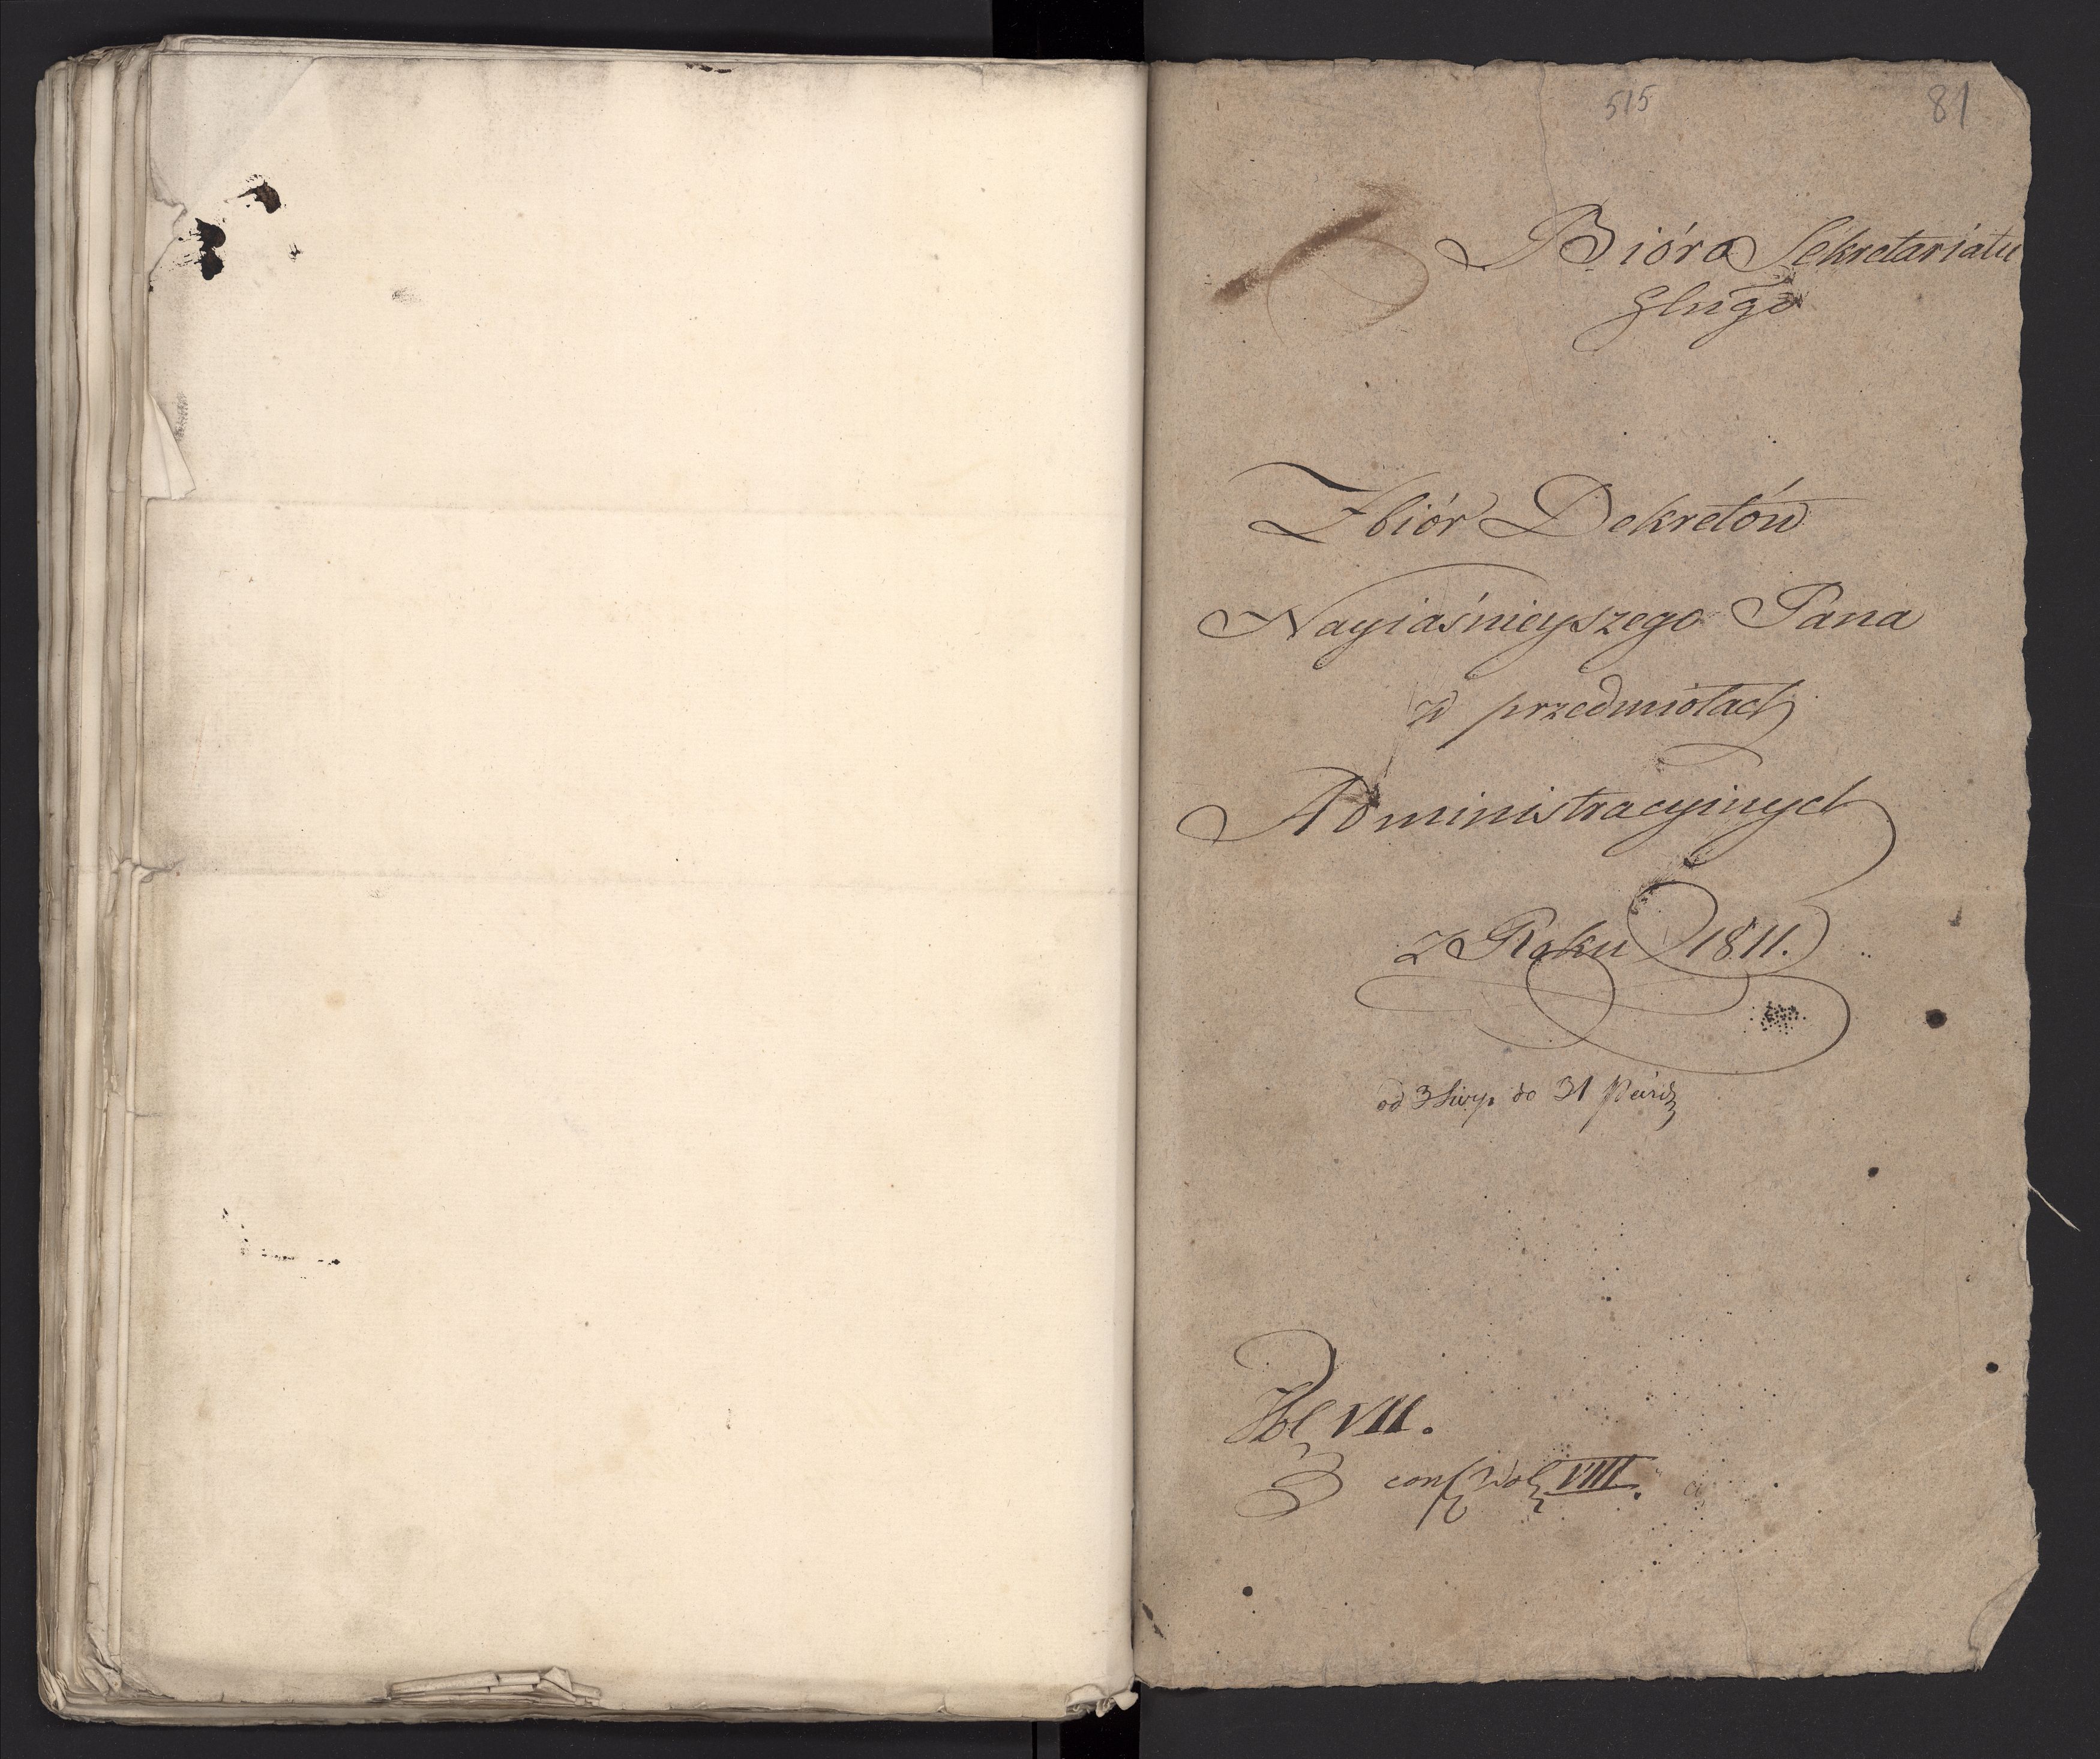 515
81
Bióro Sekretariatu
Zbiór Dekretów
Nayiaśnieyszego Pana
w przedmiotach
Administracyinych
z Roku 1811.
od 3 do 31 Paźdz
Vol VII.
conf Vol VIII.